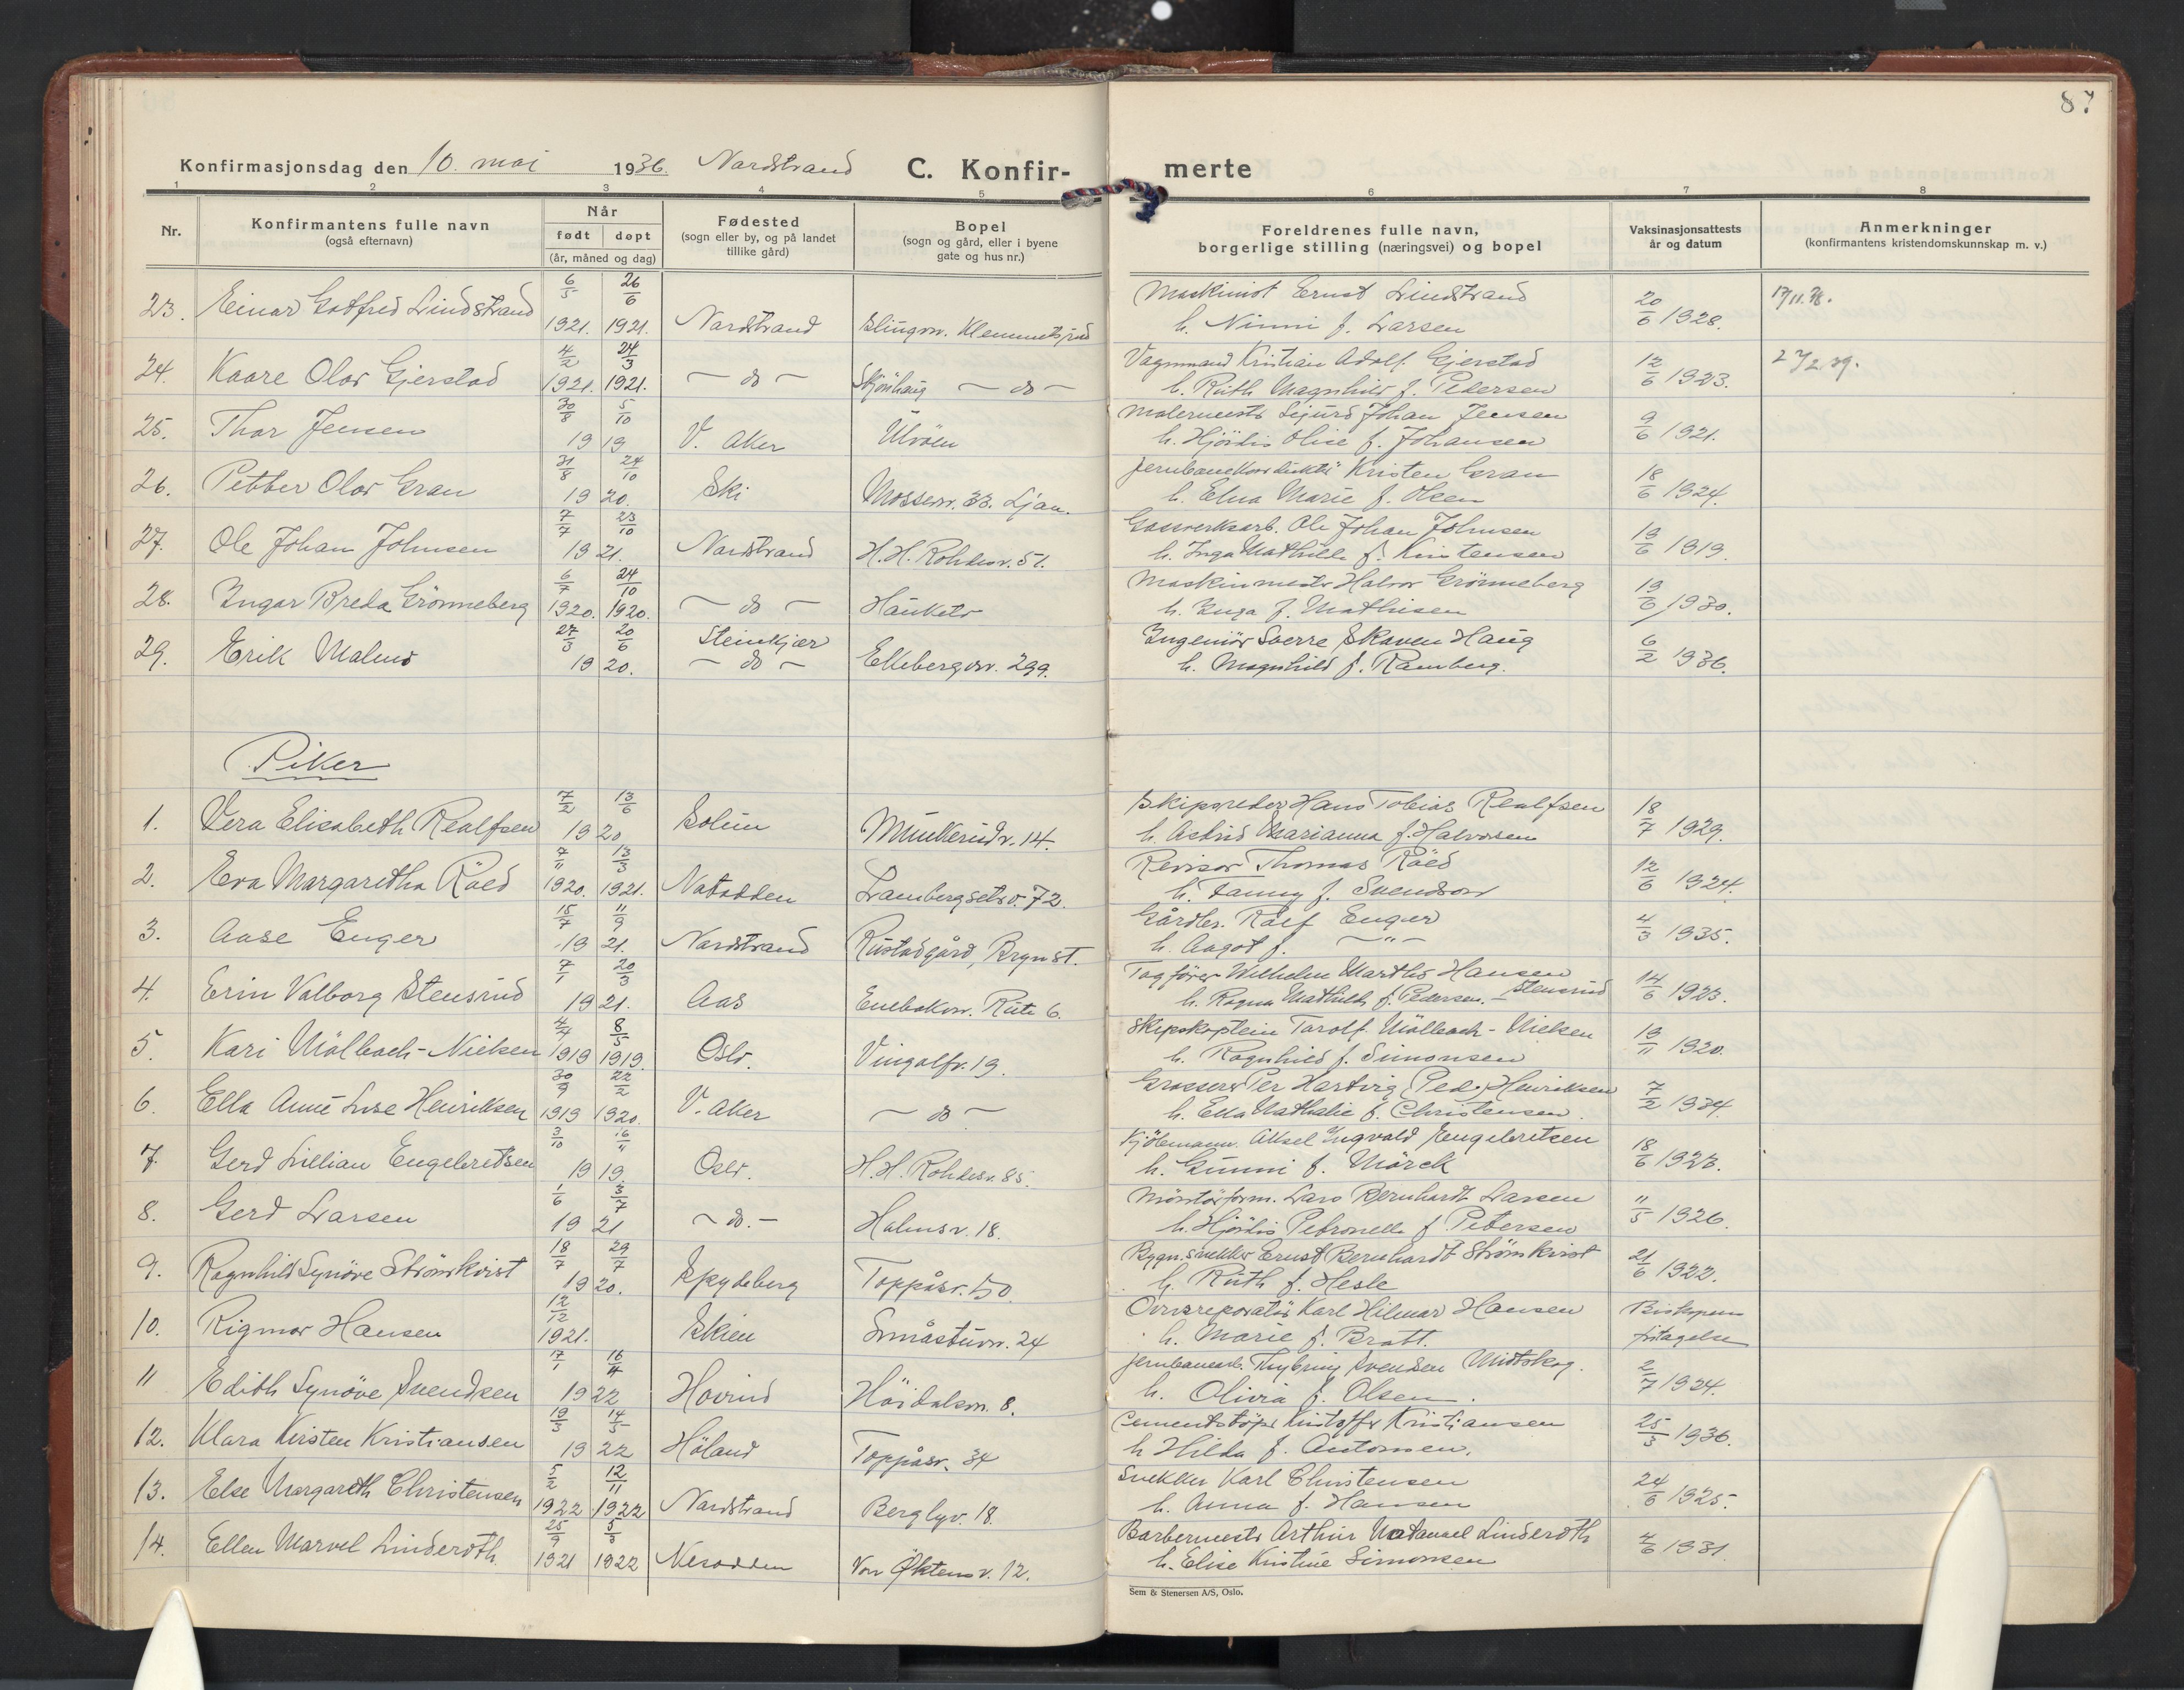 87
Konfirmasjonsdag den 10. mai 1936. Nordstrand C. Konfir- merte
1 2 3 4 5 6 7 8
Nr.
Konfirmantens fulle navn
(også efternavn)
Når
født døpt
(år, måned og dag)
Fødested
(sogn eller by, og på landet
tillike gård)
Bopel
(sogn og gård, eller i byene
gate og hus nr.)
Foreldrenes fulle navn,
borgerlige stilling (næringsvei) og bopel
Vaksinasjonsattests
år og datum
Anmerkninger
(konfirmantens kristendomskunnskap m. v.)
23. Einar Gotfred Lindstrand 6/5 1921. 26/6 1921. Nordstrand Klemmetsrud
Maskinist Ernst Lindstrand 20/6 1928.
h. Ninni f. Larsen
24. Kaare Olav Gjerstad 4/2 1921. 24/3 1921. — do — Skjönhaug — do —
Vognmand Kristian Adolf Gjerstad 12/6 1923.
h. Ruth Magnhild f. Pedersen
25. Thor Jensen 30/8 5/10 1919 V. Aker Ulvöen
Malermester Sigurd Johan Jensen 9/6 1921.
h. Hjördis Olise f. Johansen
26. Petter Olav Gran 31/8 24/10 1920. Ski Mossev. 33. Ljan.
Jernbanekonduktör Kristen Gran 18/6 1924.
h. Elna Marie f. Olsen
27. Ole Johan Johnsen 7/7 23/10 1921. Nordstrand H. H. Rohdesv. 51.
Gassverksarb. Ole Johan Johnsen 19/6 1919.
h. Inga Mathilde f. Kristensen
28. Ingar Breda Grönneberg 6/7 1920. 24/10 1920. — do — Hauketo
Maskinmester Halvor Grönneberg 19/6 1930.
h. Inga f. Mathisen
29. Erik Malmo 27/3 20/6 1920. Steinkjær — do — Ekebergv. 299.
Ingeniör Sverre Skaven Haug 6/2 1936.
h. Magnhild f. Ramberg.
Piker
1. Vera Elisabeth Realfsen 7/2 13/6 1920 Munkerudv. 14.
Skipsreder Hans Tobias Realfsen 18/7 1929.
h. Astrid Marianna f. Halvorsen
2. Eva Margaretha Röed 7/11 1920. 13/3 1921. Notodden Lambergseterv. 72.
Revisor Thomas Röed 12/6 1924.
h. Fanny f. Svendsen
3. Aase Enger 15/7 11/9 1921. Nordstrand Rustadgård, Bryn st.
Gårdbr. Rolf Enger 4/3 1935.
h. Aagot f. — " —
4. Erin Valborg Stensrud 7/1 20/3 1921. Aas Enebakv. Rute 6.
Togförer Wilhelm Marths Hansen Stensrud 14/6 1923.
h. Ragna Mathilde f. Pedersen.
5. Kari Mölbach-Nielsen 4/4 1919 8/5 1919. Oslo. Vingolfv. 19.
Skipskaptein Torolf Mölbach-Nielsen 19/11 1920.
h. Ragnhild f. Simonsen
6. Ella Anne Lise Henriksen 30/9 1919 22/2 1920. V. Aker — do —
Grosserer Per Hartvig Ped. Henriksen 7/2 1934.
h. Ella Nathalie f. Christensen.
7. Gerd Lillian Engebretsen 3/10 16/11 1919. Oslo. H. H. Rohdesv. 85.
Kjöbmann Aksel Ingvald Engebretsen 18/6 1927.
h. Gunni f. Mörck
8. Gerd Larsen 1/6 3/7 1921 — do. — Holmsv. 18.
Montörform. Lars Bernhardt Larsen 11/5 1926.
h. Hjördis Petronelle f. Petersen
9. Ragnhild Synöve Strömkvist 18/7 29/7 1920. Spydeberg Toppåsv. 50.
Bygn.snekker Ernst Bernhardt Strömkvist 21/6 1922.
h. Ruth f. Hesle
10. Rigmor Hansen 12/12 1921. Skien Småstuv. 24
Ovnsreparatör Karl Hilmar Hansen Biskopens
h. Marie f. Bratt. fritagelse
11 Edith Synöve Svendsen 17/1 16/4 1922 Hovind Höidalsv. 8.
Jernbanearb. Thybring Svendsen Midtskog. 2/7 1924.
h. Olivia f. Olsen.
12. Klara Kirsten Kristiansen 19/3 14/5 1922 Höland Toppåsv. 34
Cementstöper Kristoffer Kristiansen 25/3 1936.
h. Hilda f. Antonsen.
13. Else Margareth Christensen 5/2 1922 12/11 1922 Nordstrand Berglyv. 18.
Snekker Karl Christensen 24/6 1925.
h. Anna f. Hansen
14. Ellen Marvel Linderoth. 25/9 1921 5/3 1922 Nesodden Von Øktensv. 12.
Barbermester Arthur Natanael Linderoth 4/6 1931.
h. Elise Kristine Simonsen
Sem & Stenersen A/S, Oslo.